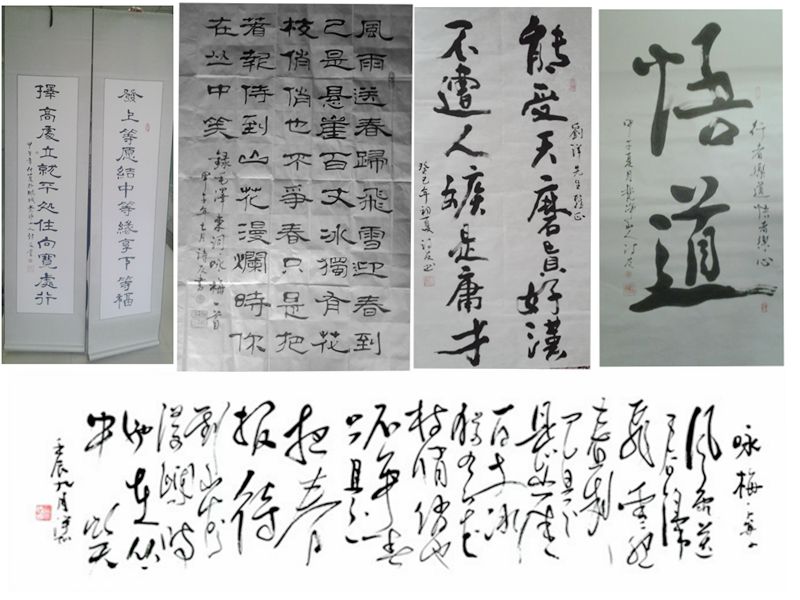 發上等愿結中等緣享下等福
擇高處立就平处住向寬處行
風雨送春歸飛雪迎春到
已是悬崖百丈冰獨有花
枝俏俏也不爭春只是把
春報待到山花漫爛時你
在丛中笑
錄毛澤東詞咏梅一首
甲午年七月
劉洋先生雅正
能受天磨真好漢
不遭人嫉是庸才
癸巳年初夏
行者樂道悟者樂心
悟道
甲午夏月
咏梅
風雨送
春歸
飛雪迎
春到
已是
悬崖
百丈冰
犹有花
枝俏俏也
不争春
只是
把春
报待
到山花
漫爛時
她在丛
中笑
壬辰九月